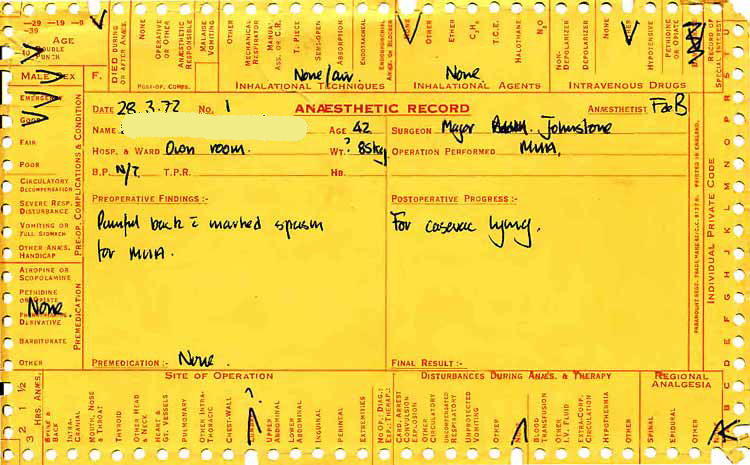 —29 —19 —9
—39
AGE
TO DOUBLE
PUNCH
MALE SEX F.
DIED DURING
OR AFTER ANÆS.
NONE
OPERATIVE
OR OTHER
ANÆSTHETIC
RESPONSIBLE
MALAISE
VOMITING
OTHER
POST-OP. COMPS.
MECHANICAL
RESPIRATOR
MANUAL
ASS. OR C.R.
T. PIECE
SEMI-OPEN
ABSORPTION
ENDOTRACHEAL
ENDOBRONCHIAL
ANÆS. OR BLOCKER
None/air.
INHALATIONAL TECHNIQUES
NONE
OTHER
ETHER
C₃H₆
T.C.E.
HALOTHANE
N₂O
None.
INHALATIONAL AGENTS
NON-
DEPOLARIZER
DEPOLARIZER
NONE
OTHER
HYPOTENSIVE
PETHIDINE
OR OPIATE
INTRAVENOUS DRUGS
RECORD OF
SPECIAL INTEREST
EMERGENCY
GOOD
FAIR
POOR
CIRCULATORY
DECOMPENSATION
SEVERE RESP.
DISTURBANCE
VOMITING OR
FULL STOMACH
OTHER ANÆS.
HANDICAP
PRE-OP. COMPLICATIONS & CONDITION
ATROPINE OR
SCOPOLAMINE
PETHIDINE
OR OPIATE
None.
DERIVATIVE
BARBITURATE
OTHER
PREMEDICATION
DATE 28.3.72 NO. 1 ANÆSTHETIC RECORD ANÆSTHETIST FdeB
NAME AGE 42 SURGEON Major Johnstone
HOSP. & WARD Own room. WT. ? 85kg OPERATION PERFORMED MUA.
B.P. N/T. T.P.R. HB.
PREOPERATIVE FINDINGS :- POSTOPERATIVE PROGRESS :-
Painful back c̄ marked spasm For casevac lying.
for MUA.
PREMEDICATION :- None. FINAL RESULT :-
PARAMOUNT REGD. TRADE MARK PRINTED IN ENGLAND.
INDIVIDUAL PRIVATE CODE
A B C D E F G H I J K L M N O P R S U
3 2 1 ½
HRS. ANÆS.
SITE OF OPERATION
SPINE &
BACK
INTRA-
CRANIAL
MOUTH, NOSE
& THROAT
THYROID
OTHER HEAD
& NECK
HEART &
GT. VESSELS
PULMONARY
OTHER INTRA-
THORACIC
CHEST-WALL
?
UPPER
ABDOMINAL
LOWER
ABDOMINAL
INGUINAL
PERINEAL
EXTREMITIES
NO OP.; DIAG.:
EXP.; THERAP.:
DISTURBANCES DURING ANÆS. & THERAPY
CARD. ARREST
CONVULSION
EXPLOSION
OTHER
CIRCULATORY
UNCOMPENSATED
RESPIRATORY
UNPROTECTED
VOMITING
OTHER
BLOOD
TRANSFUSION
OTHER
I.V. FLUID
EXTRA-CORP.
CIRCULATION
HYPOTHERMIA
OTHER
REGIONAL
ANALGESIA
SPINAL
EPIDURAL
OTHER